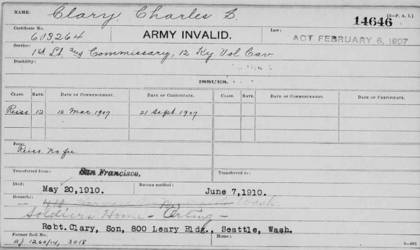 NAME: Clary, Charles L. 14646 (3-P. A. I.)
Certificate No. 613264 ARMY INVALID. Law: ACT FEBRUARY 6, 1907
Service: 1st Lt. and Commissary, 12 Ky Vol Cav
Disability:
ISSUES.
CLASS. RATE. DATE OF COMMENCEMENT. DATE OF CERTIFICATE. CLASS. RATE. DATE OF COMMENCEMENT. DATE OF CERTIFICATE.
Reiss 12 12 Mar 1907 21 Sept 1907
From
Transferred from San Francisco.
Died: May 20, 1910. Bureau notified: June 7, 1910.
Remarks: Wash
Soldiers Home - Orting -
Robt. Clary, Son, 800 Leary Bldg., Seattle, Wash.
Former Roll No.